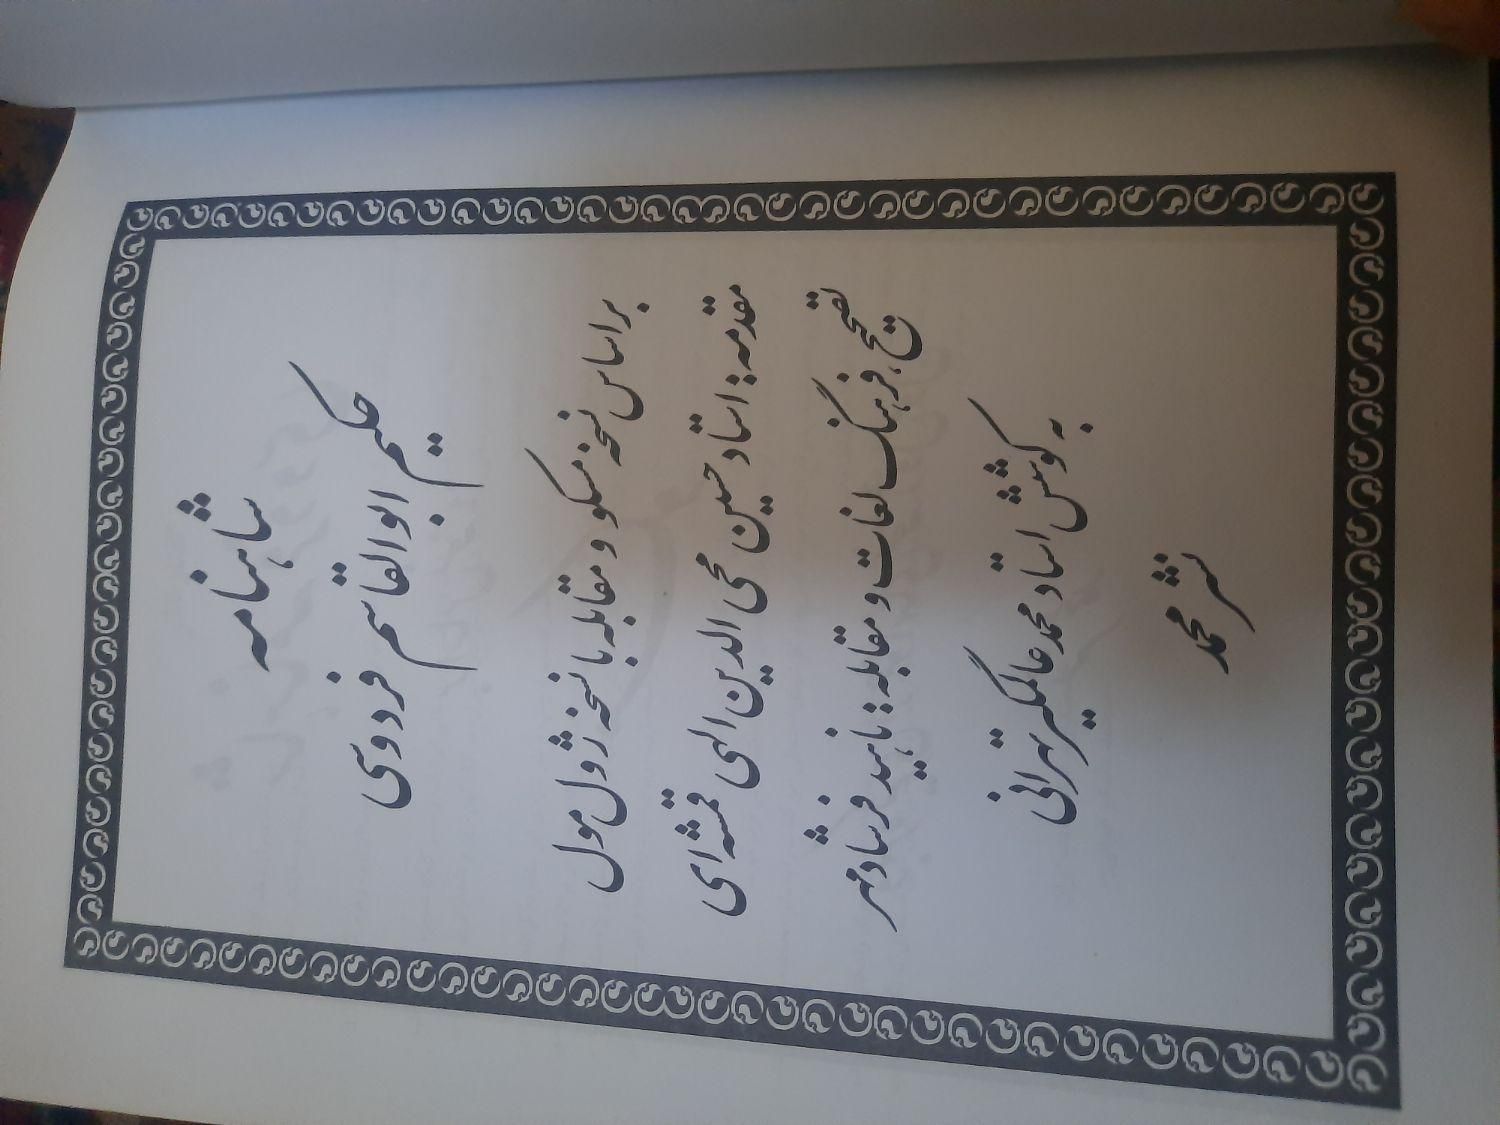 شاهنامه
حکیم ابوالقاسم فردوسی
بر اساس نسخه مسکو و مقابله با نسخه ژول مول
مقدمه: استاد حسین محی الدین الهی قمشه ای
تصحیح، فرهنگ لغات و مقابله: ناهید فرشادمهر
به کوشش استاد محمد عالمگیر تهرانی
نشر محمد